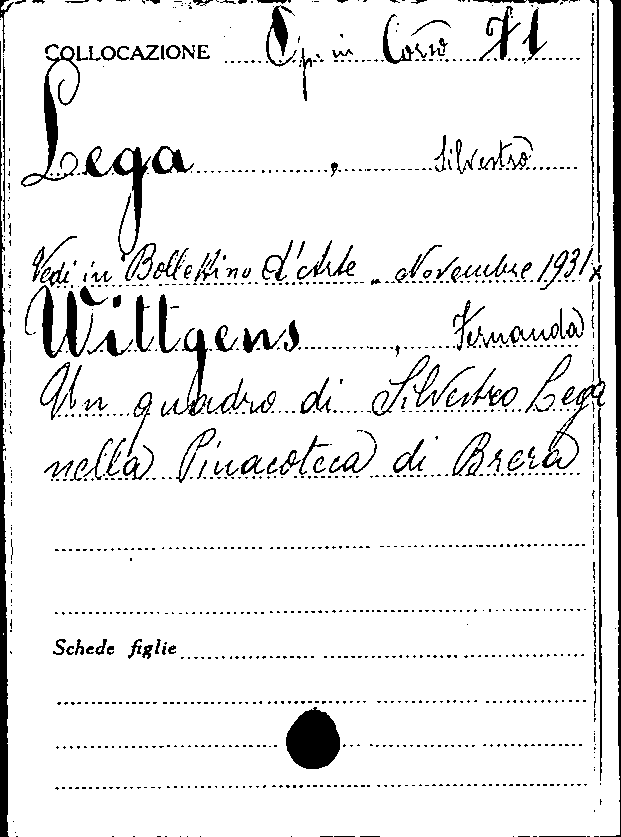 COLLOCAZIONE Op. in Corso 71
Lega, Silvestro
Vedi in "Bollettino d'Arte" Novembre 1931 x
Wittgens, Fernanda
Un quadro di Silvestro Lega
nella Pinacoteca di Brera
Schede figlie